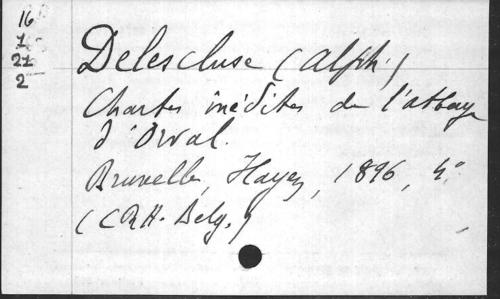 16
1
21
2
Delescluse (Alph.)
Chartes inédites de l'abbaye
d'Orval.
Bruxelles, Hayez, 1896, 4°
(CRH. Belg.)